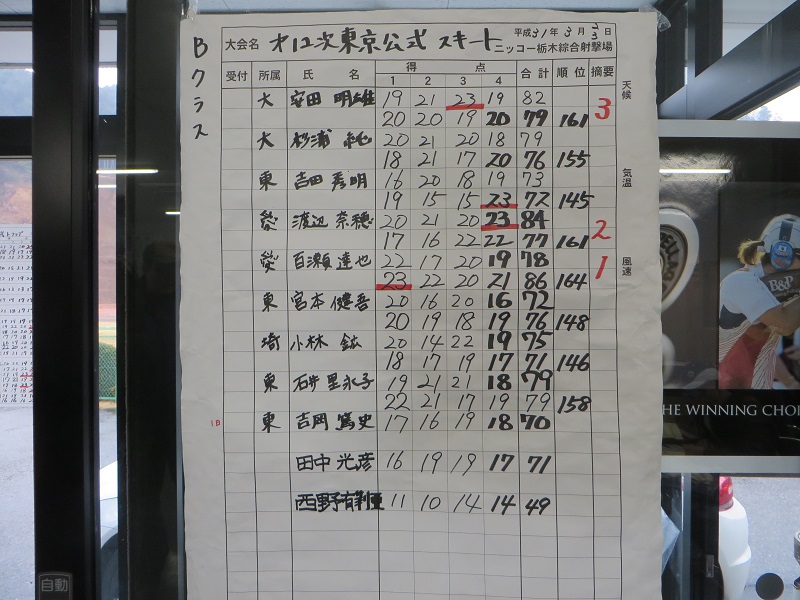 Bクラス
大会名 オ12次東京公式 スキート 平成31年3月23日
ニッコー栃木綜合射撃場
受付 所属 氏名 得点 合計 順位 摘要
1 2 3 4
大 安田 明雄 19 21 23 19 82
20 20 19 20 79 161 3
大 杉浦 20 21 20 18 79
18 21 17 20 76 155
東 吉田 秀明 16 20 18 19 73
19 15 15 23 72 145
渡辺 奈穂 20 21 20 23 84
17 16 22 22 77 161 2
百瀬 達也 22 17 20 19 78
23 22 20 21 86 164 1
東 宮本 健吾 20 16 20 16 72
20 19 18 19 76 148
埼 小林 鉱 20 14 22 19 75
18 17 19 17 71 146
東 石井 里永子 19 21 21 18 79
22 21 17 19 79 158
1日 東 吉岡 篤史 17 16 19 18 70
田中 光彦 16 19 19 17 71
西野 11 10 14 14 49
天候
気温
風速
B&P
HE WINNING CHOI
自動